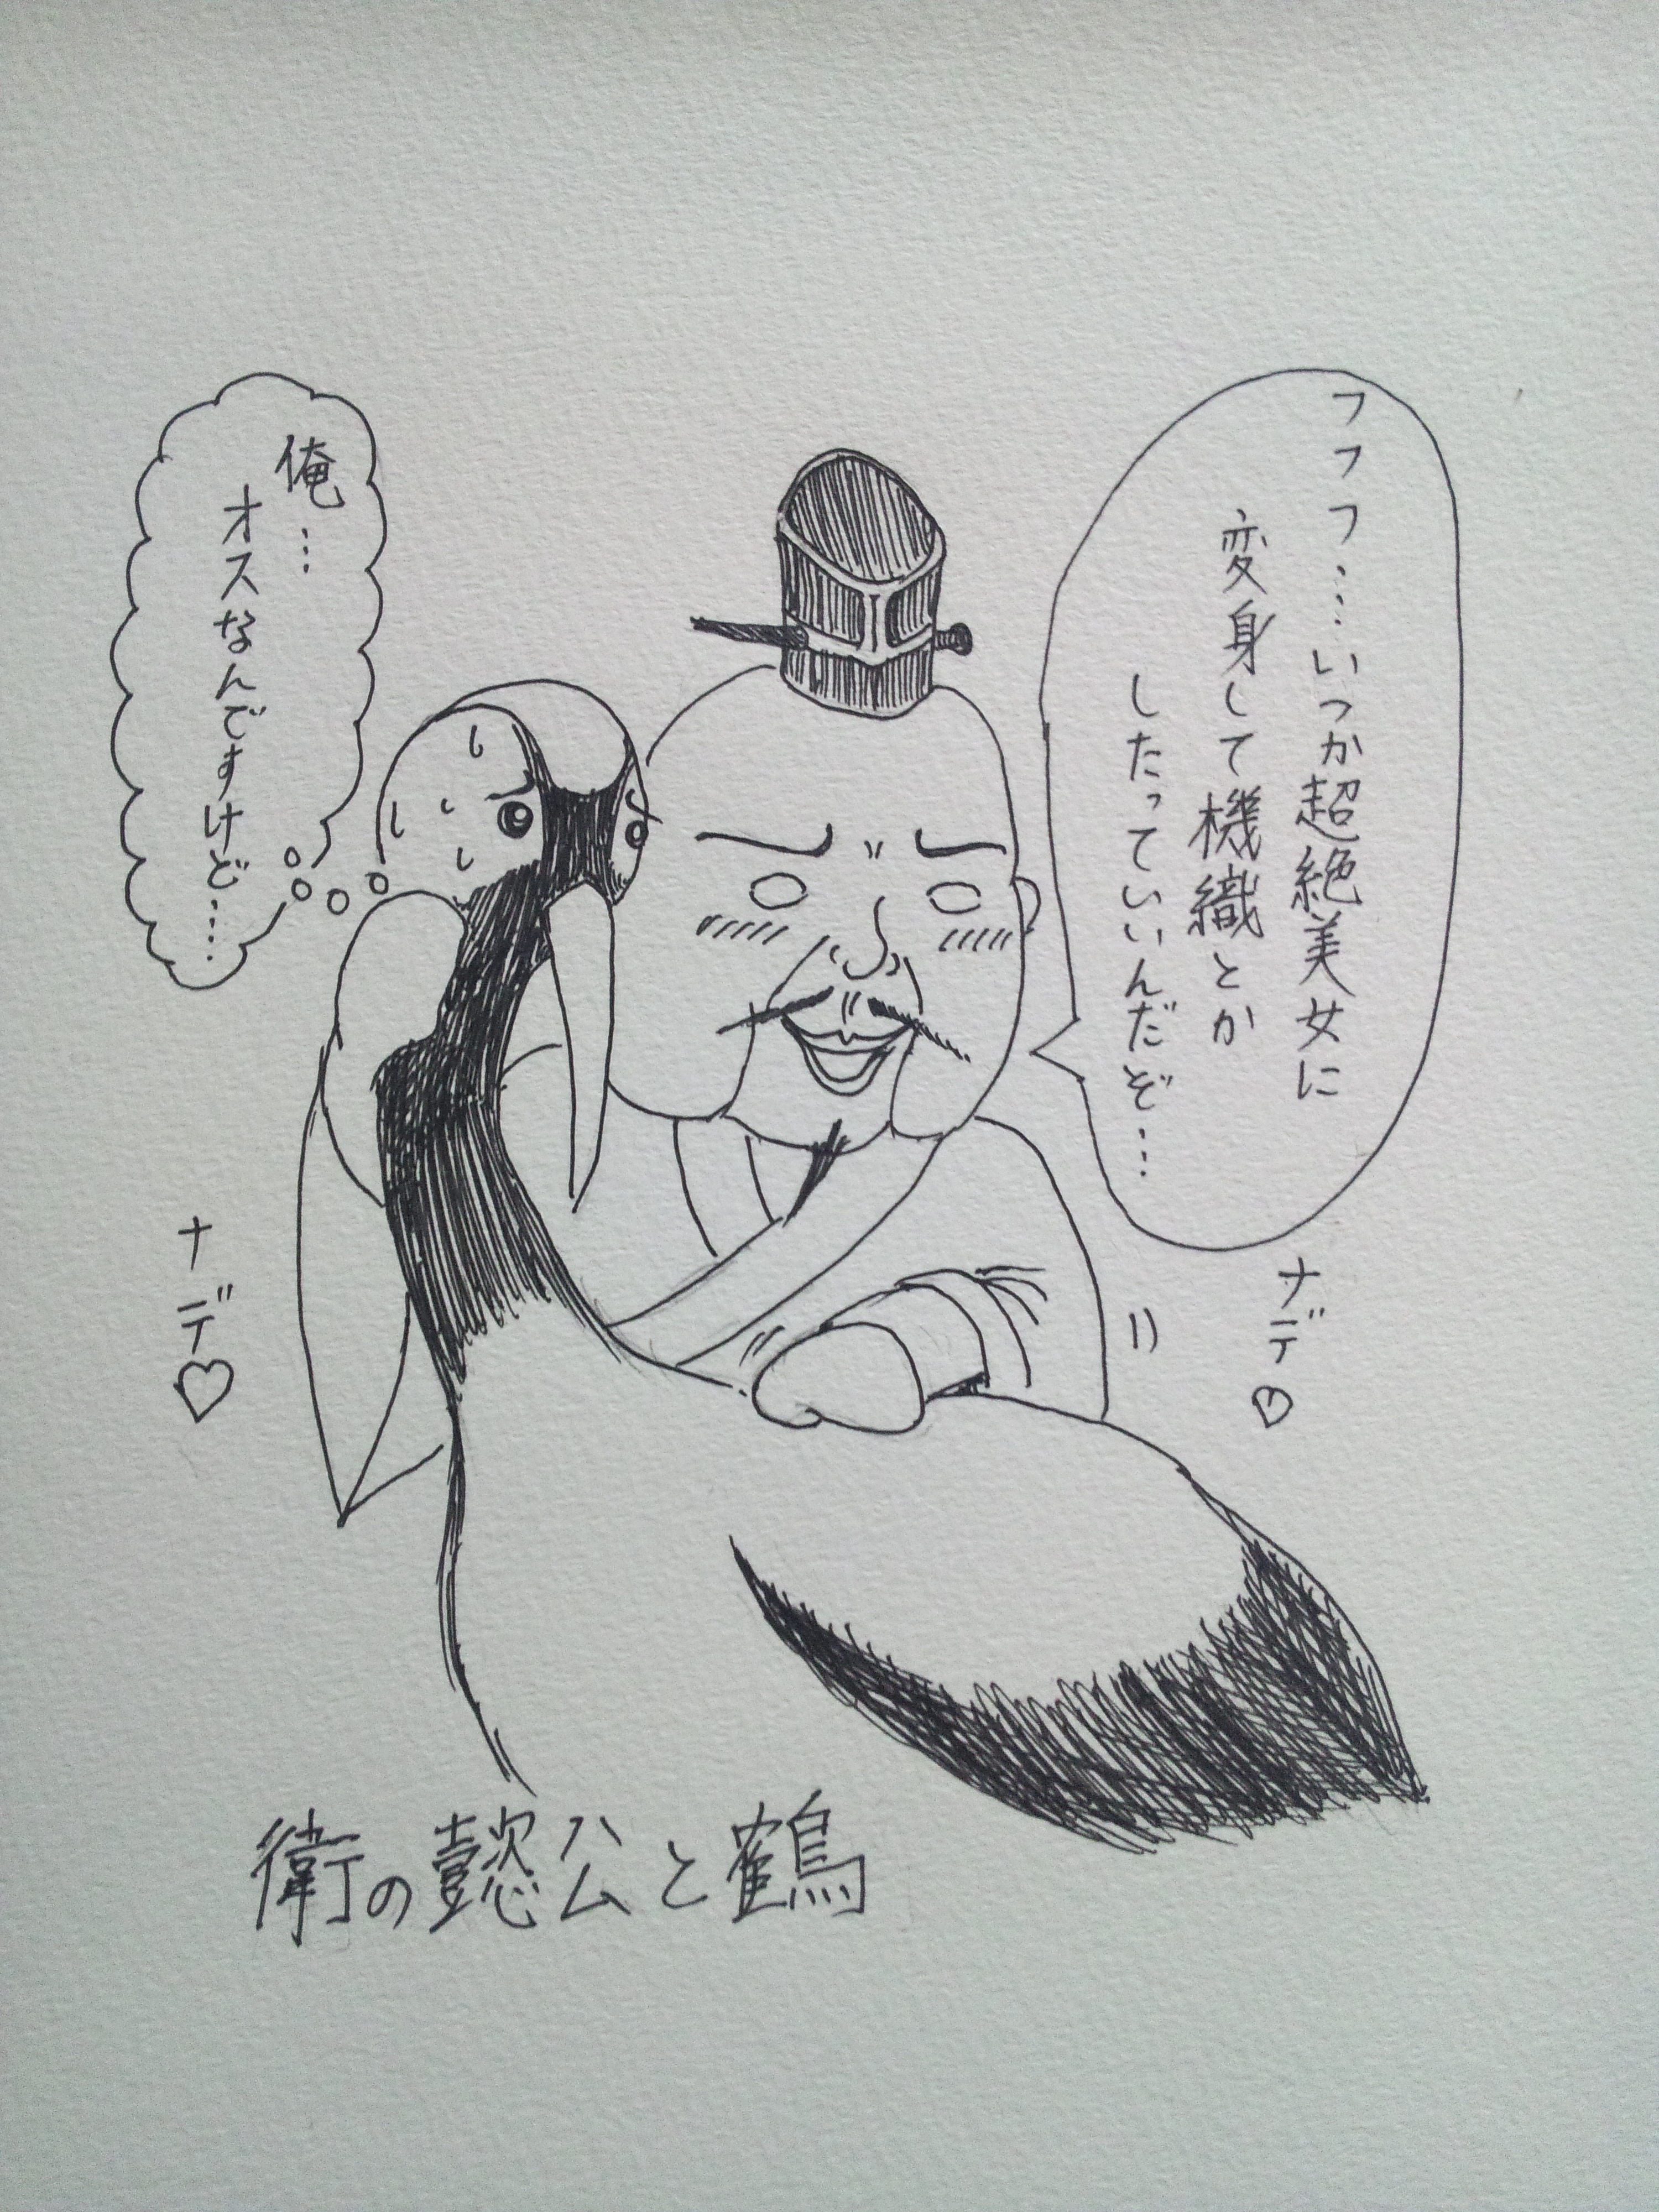 フフフ…いつか超絶美女に
変身して機織とか
したっていいんだぞ…
俺…
オスなんですけど…
ナデ♡
ナデ♡
衛の懿公と鶴